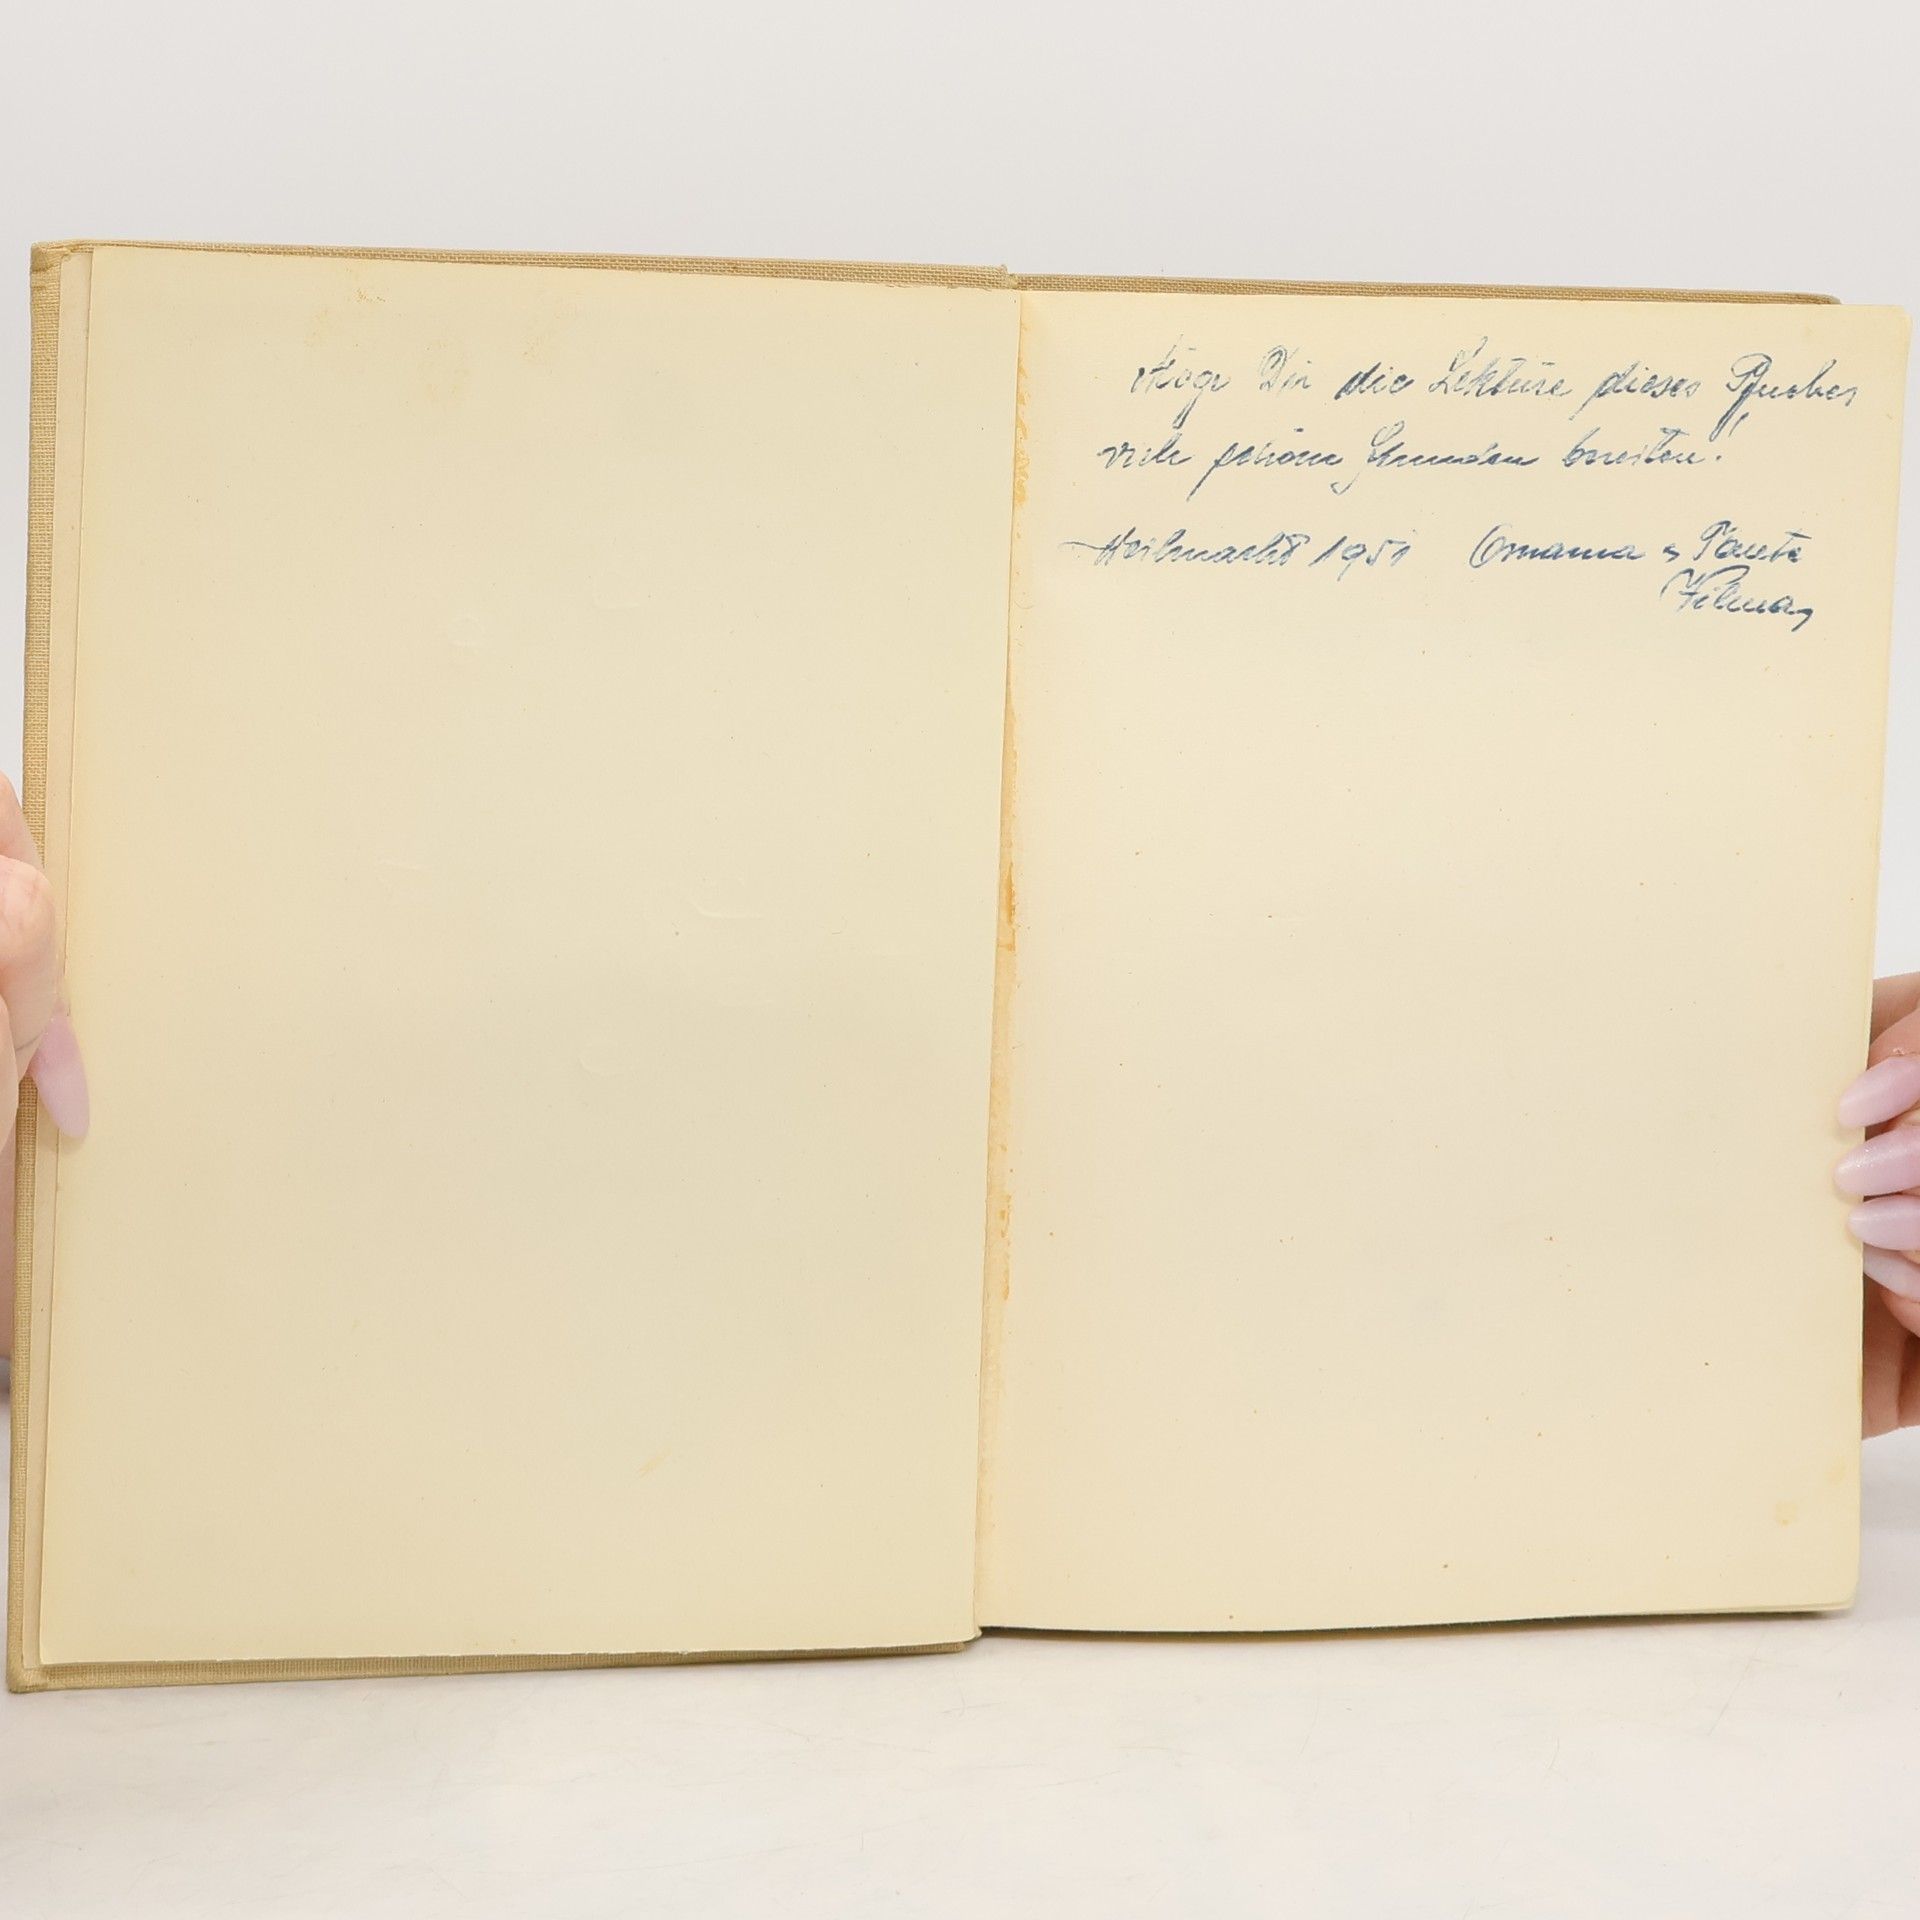 Möge Dir die Lektüre dieses Buches
viele schöne Stunden bereiten!
Weihnacht 1951 Omama u Tante
Vilma